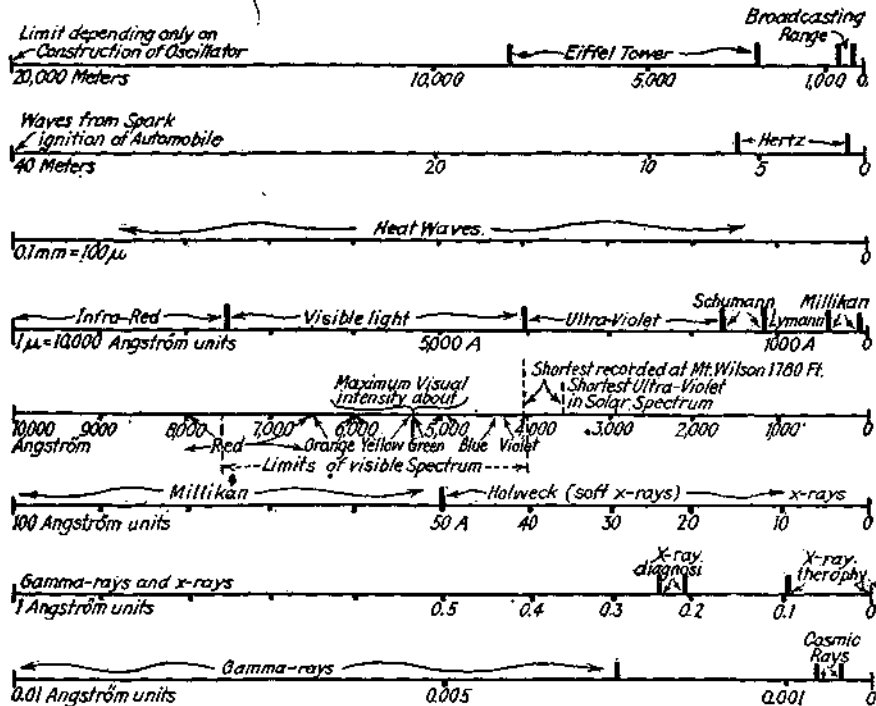 Limit depending only on
Construction of Oscillator
Eiffel Tower
Broadcasting
Range
20,000 Meters 10,000 5,000 1,000 0
Waves from Spark
ignition of Automobile
Hertz
40 Meters 20 10 5 0
Heat Waves.
0.1mm=100μ 0
Infra-Red Visible light Ultra-Violet Schumann Lymann Millikan
1μ=10,000 Angström units 5,000 A 1000 A 0
Shortest recorded at Mt. Wilson 1780 Ft.
Maximum Visual
intensity about
Shortest Ultra-Violet
in Solar Spectrum
10,000 9,000 8,000 7,000 6,000 5,000 4,000 3,000 2,000 1,000 0
Angström
Red Orange Yellow Green Blue Violet
Limits of visible Spectrum
Millikan Holweck (soft x-rays) x-rays
100 Angström units 50 A 40 30 20 10 0
Gamma-rays and x-rays
X-ray
diagnosi
X-ray.
theraphy
1 Angström units 0.5 0.4 0.3 0.2 0.1 0
Gamma-rays
Cosmic
Rays
0.01 Angström units 0.005 0.001 0